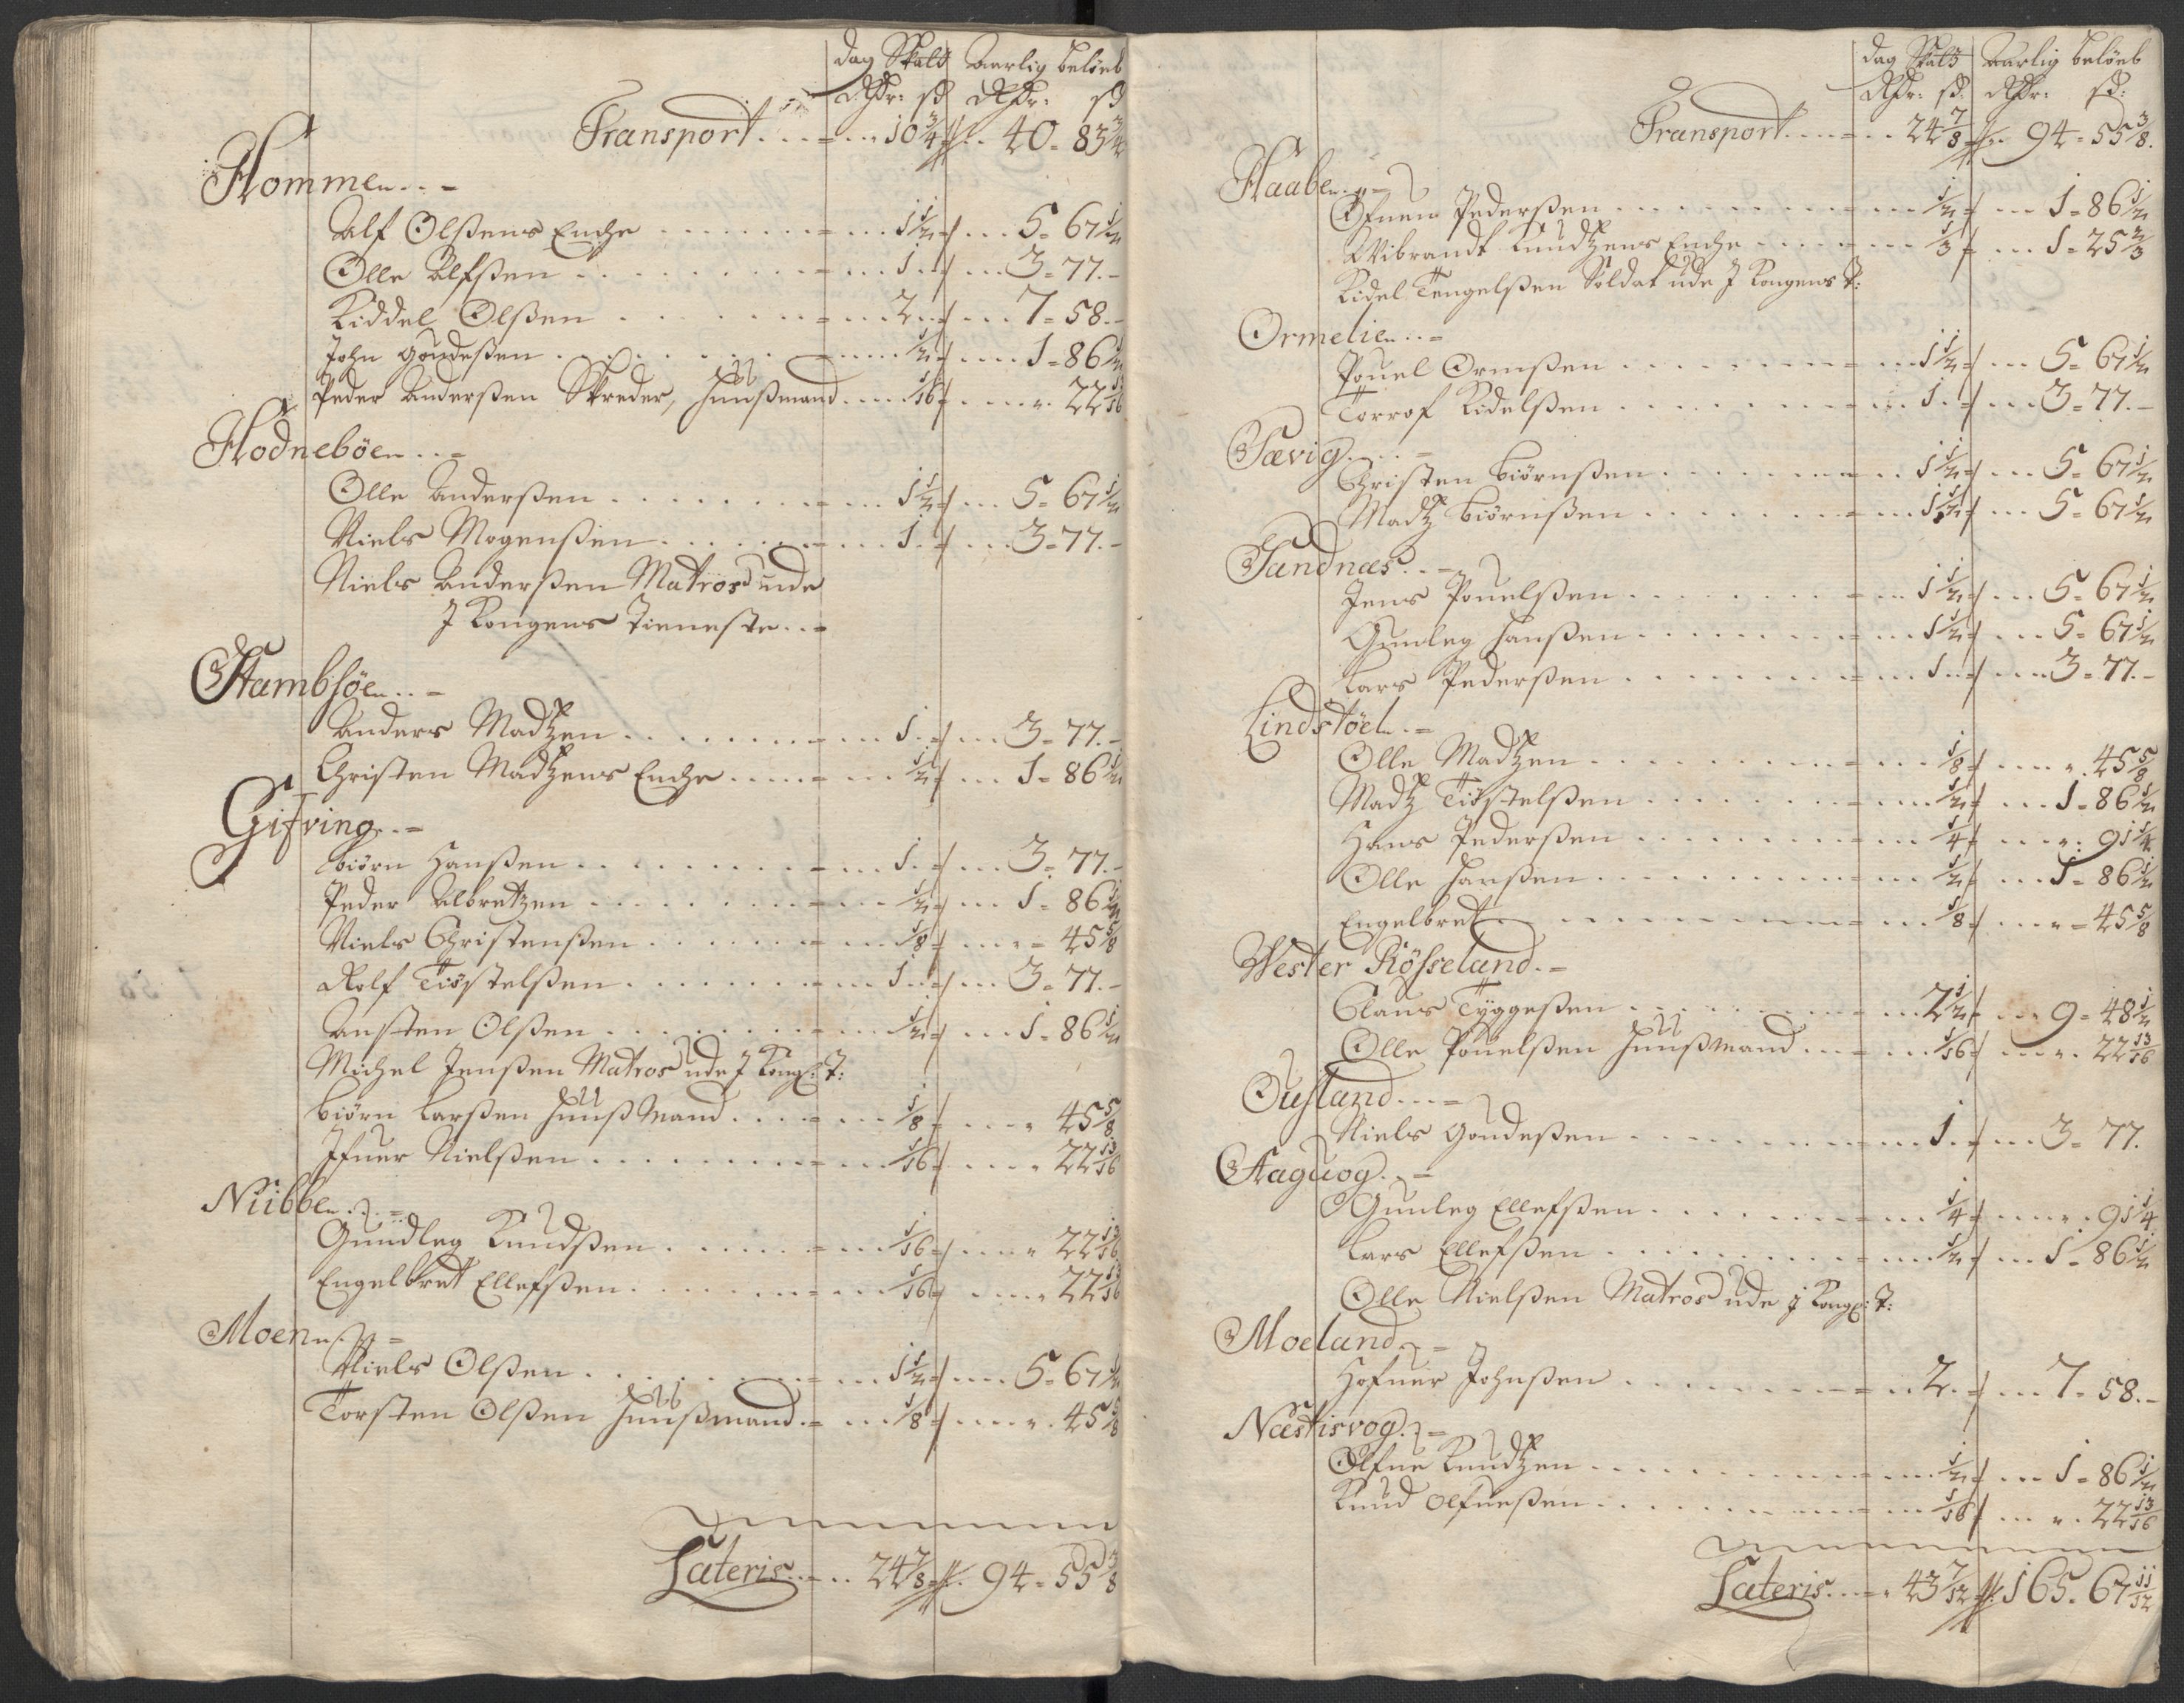 dag Skatt Aarlig beløeb
Rdr: ß Rdr: ß
Transport . . . 10 3/4 . . 40 - 83 3/4
Homme . . -
Alf Olßens Enche . . . 1 1/2 . . . 5 - 67 1/2
Olle Alfßen . . . 1 . . . 3 - 77 . -
Kiddel Olßen . . . 2 . . . 7 - 58 . -
John Gondeßen . . . 1/2 . . . 1 - 86 1/2
Peder Anderßen Skreder, Huußmand . . . 1/16 . . . 22 13/16
Hodnebøe . . -
Olle Anderßen . . . 1 1/2 . . . 5 - 67 1/2
Niels Mogenßen . . . 1 . . . 3 - 77 . -
Niels Anderßen Matros ude
J Kongens Tieneste . . -
Stambsøe . . -
Anders Madtzen . . . 1 . . . 3 - 77 . -
Christen Madtzens Enche . . . 1/2 . . . 1 - 86 1/2
Gifving . . -
Biørn Hanßen . . . 1 . . . 3 - 77 . -
Peder Albretzen . . . 1/2 . . . 1 - 86 1/2
Niels Christenßen . . . 1/8 . . . 45 5/8
Rolf Tiøstelßen . . . 1 . . . 3 - 77 . -
Ansten Olßen . . . 1/2 . . . 1 - 86 1/2
Michel Jenßen Matros ude J Kong: T:
Biørn Larßen Huuß Mand . . . 1/8 . . . 45 5/8
Ifuer Nielßen . . . 1/16 . . . 22 13/16
Nübbe . . -
Gundleg Knudßen . . . 1/16 . . . 22 13/16
Engelbret Ellefßen . . . 1/16 . . . 22 13/16
Moen . . -
Niels Olßen . . . 1 1/2 . . . 5 - 67 1/2
Torsten Olßen Huußmand . . . 1/8 . . . 45 5/8
Lateris . . . 24 7/8 . 94 - 55 3/8
dag Skatt Aarlig beløeb
Rdr: ß: Rdr: ß:
Transport . . . 24 7/8 . . 94 - 55 3/8
Haabe . . -
Ofnen Pederßen . . . 1/2 . . . 1 - 86 1/2
Wibrandt Knudtzens Enche . . . 1/3 . . . 1 - 25 2/3
Kidel Tengelßen Soldat ude J Kongens T:
Ormelie . . -
Pouel Ormßen . . . 1 1/2 . . . 5 - 67 1/2
Torrof Kidelßen . . . 1 . . . 3 - 77 . -
Sævig . . -
Christen Biørnßen . . . 1 1/2 . . . 5 - 67 1/2
Madtz Biørnßen . . . 1 1/2 . . . 5 - 67 1/2
Sandnæs . . -
Jens Pouelßen . . . 1 1/2 . . . 5 - 67 1/2
Gunleg Hanßen . . . 1 1/2 . . . 5 - 67 1/2
Lars Pederßen . . . 1 . . . 3 - 77 . -
Lindstøel . . -
Olle Madtzen . . . 1/8 . . . 45 5/8
Madtz Tiøstelßen . . . 1/2 . . . 1 - 86 1/2
Hans Pederßen . . . 1/4 . . . 91 1/4
Olle Hanßen . . . 1/2 . . . 1 - 86 1/2
Engelbret . . . 1/8 . . . 45 5/8
Wester Røsseland . -
Claus Tyggeßen . . . 2 1/2 . . . 9 - 48 1/2
Olle Pouelßen Huußmand . . . 1/16 . . . 22 13/16
Ousland . . -
Niels Gondeßen . . . 1 . . . 3 - 77 .
Haguog . . -
Gunleg Ellefßen . . . 1/4 . . . 91 1/4
Lars Ellefßen . . . 1/2 . . . 1 - 86 1/2
Olle Nielßen Matros ude J Kong: T:
Moeland . . -
Hofuer Johnßen . . . 2 . . . 7 - 58 . -
Næstisvog . . -
Olfue Knudtzen . . . 1/2 . . . 1 - 86 1/2
Knud Olfueßen . . . 1/16 . . . 22 13/16
Lateris . . . 43 7/12 . 165 - 67 11/12